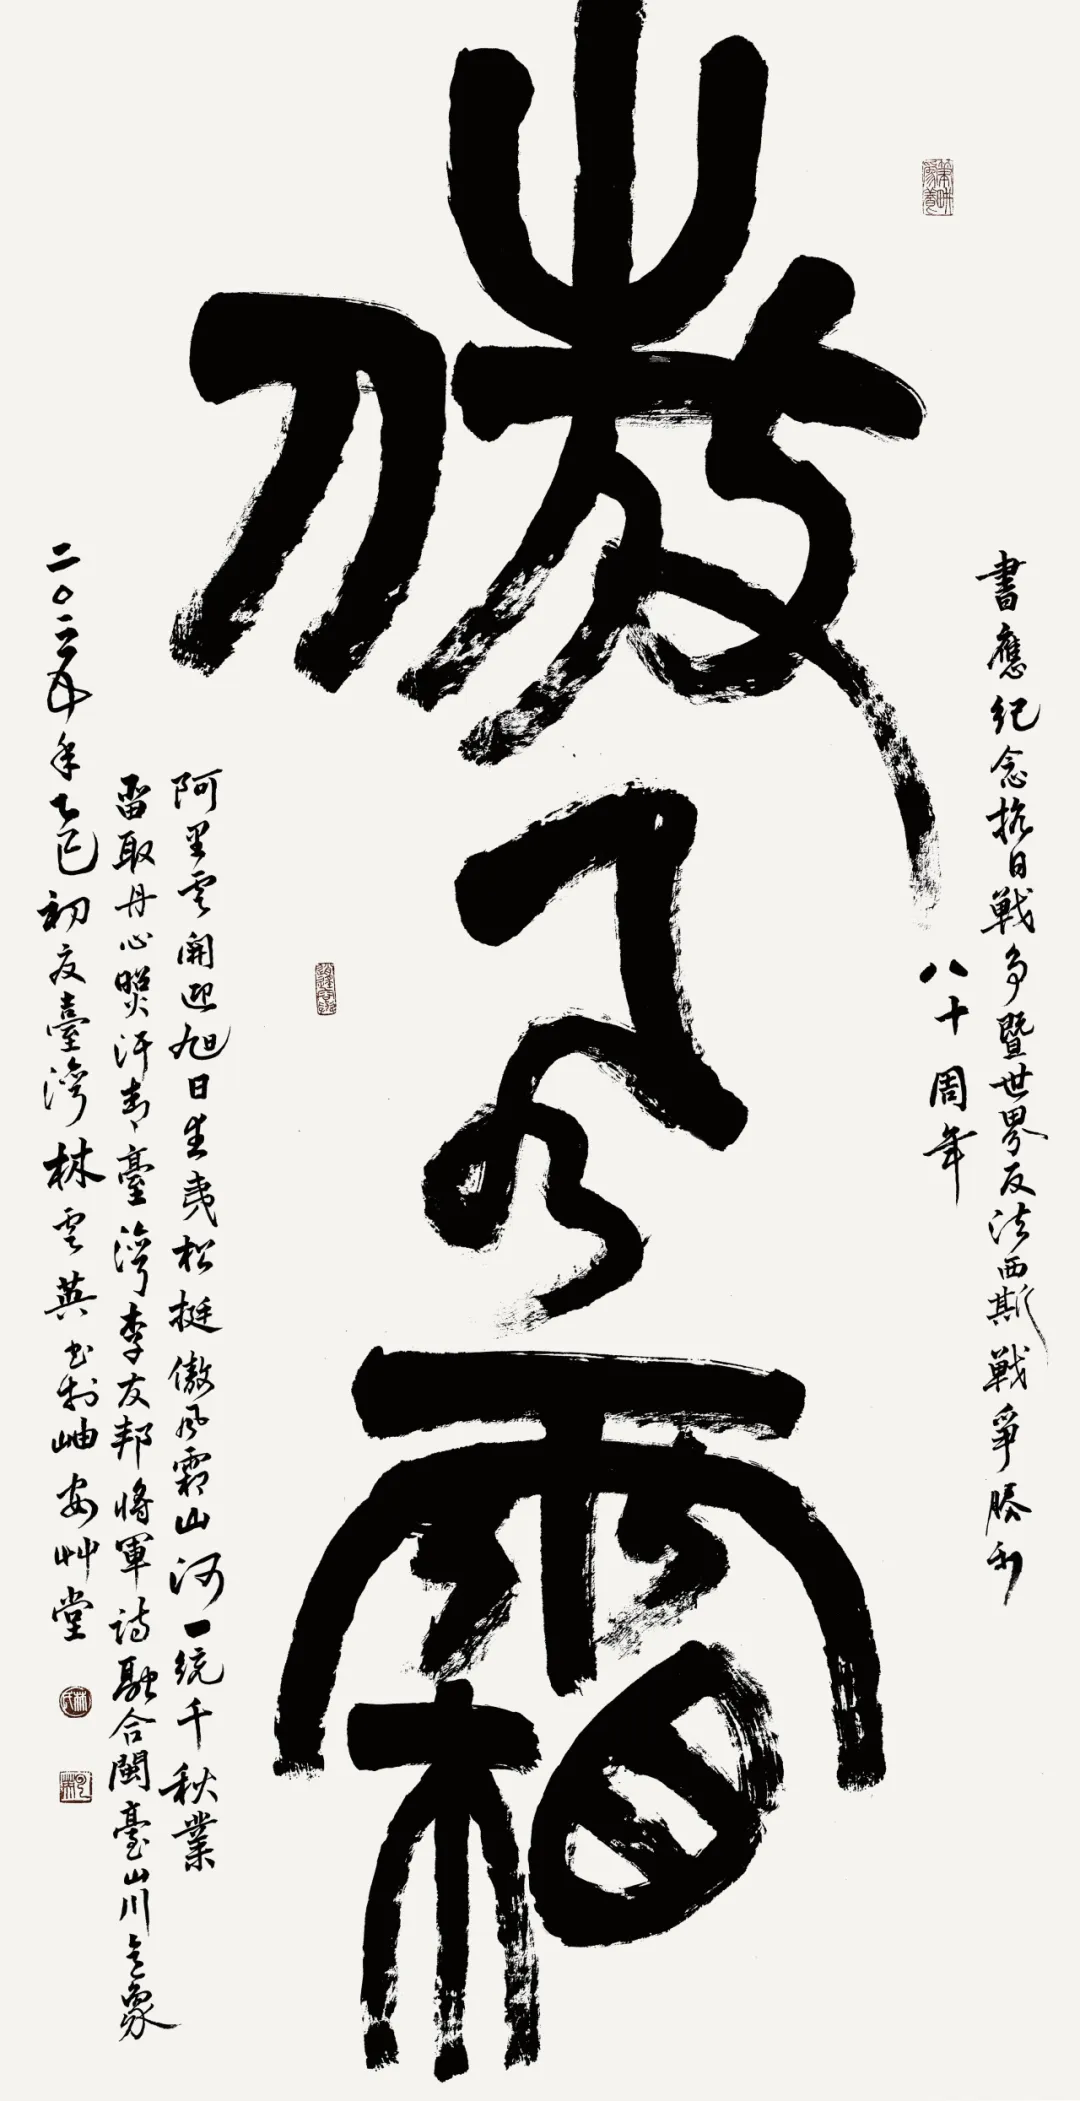 書應紀念抗日戰爭暨世界反法西斯戰爭勝利
八十周年
傲風霜
阿里雲開迎旭日武夷松挺傲風霜山河一統千秋業
留取丹心照汗青臺灣李友邦將軍詩融合閩臺山川气象
二〇二五年乙巳初夏臺灣林雲英書於岫安艸堂